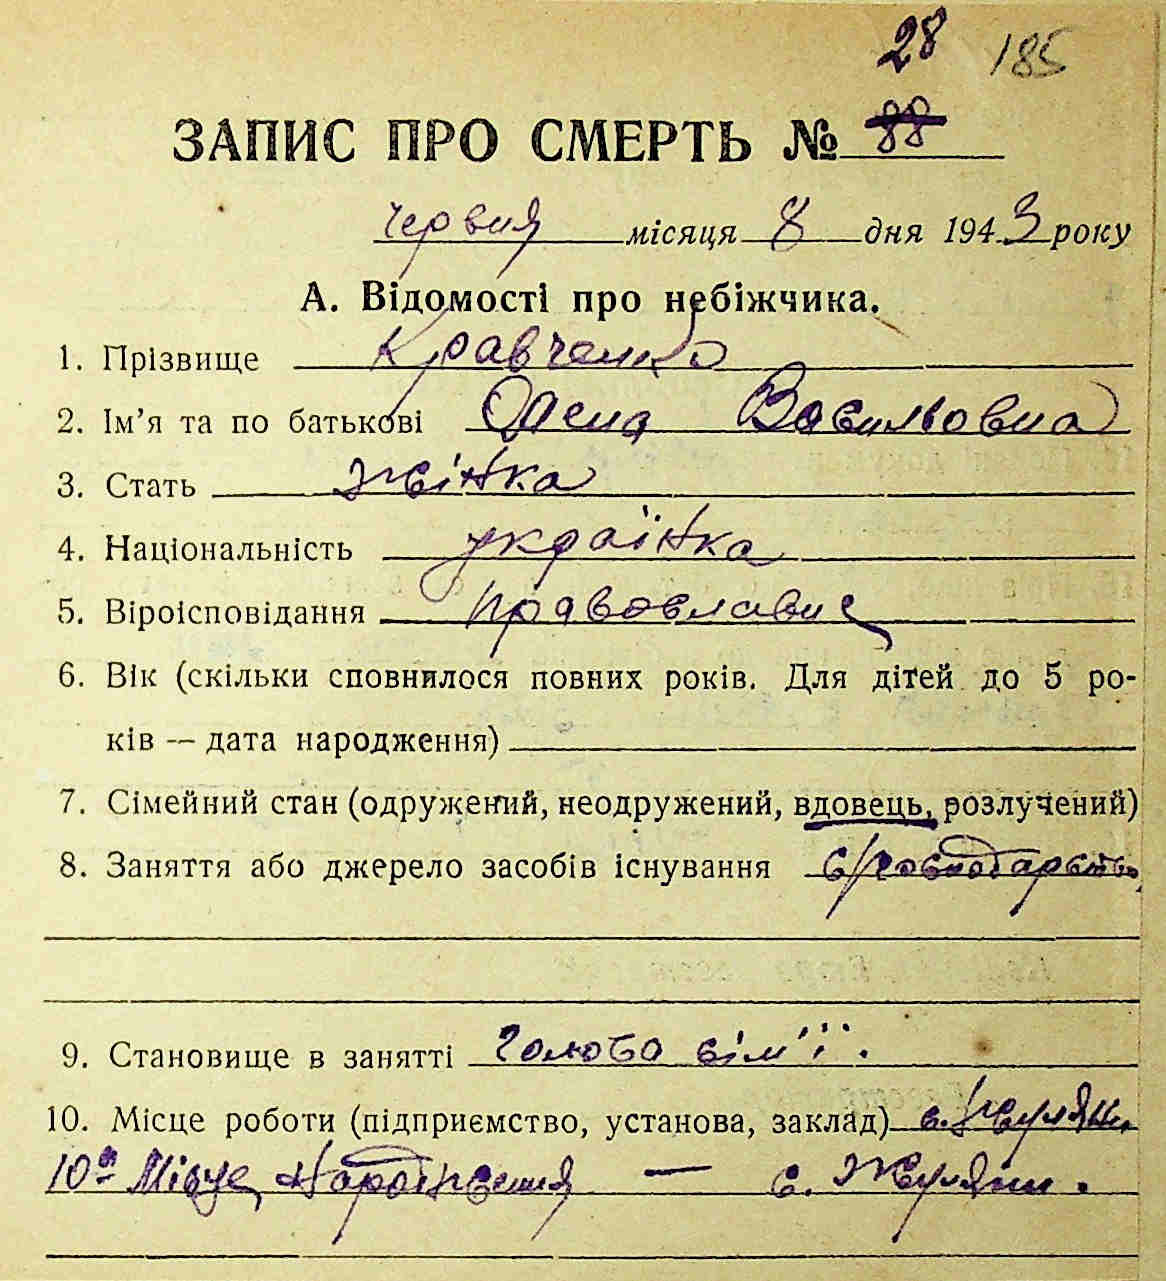 28 185
ЗАПИС ПРО СМЕРТЬ № 88
червня місяця 8 дня 1943 року
А. Відомості про небіжчика.
1. Прізвище Кравченко
2. Ім'я та по батькові Олена Васильовна
3. Стать жінка
4. Національність українка
5. Віроісповідання православне
6. Вік (скільки сповнилося повних років. Для дітей до 5 ро-
ків — дата народження)
7. Сімейний стан (одружений, неодружений, вдовець, розлучений)
8. Заняття або джерело засобів існування с/господарство
9. Становище в занятті голова сім'ї.
10. Місце роботи (підприємство, установа, заклад) с. Жуляни.
10а Місце народження — с. Жуляни.